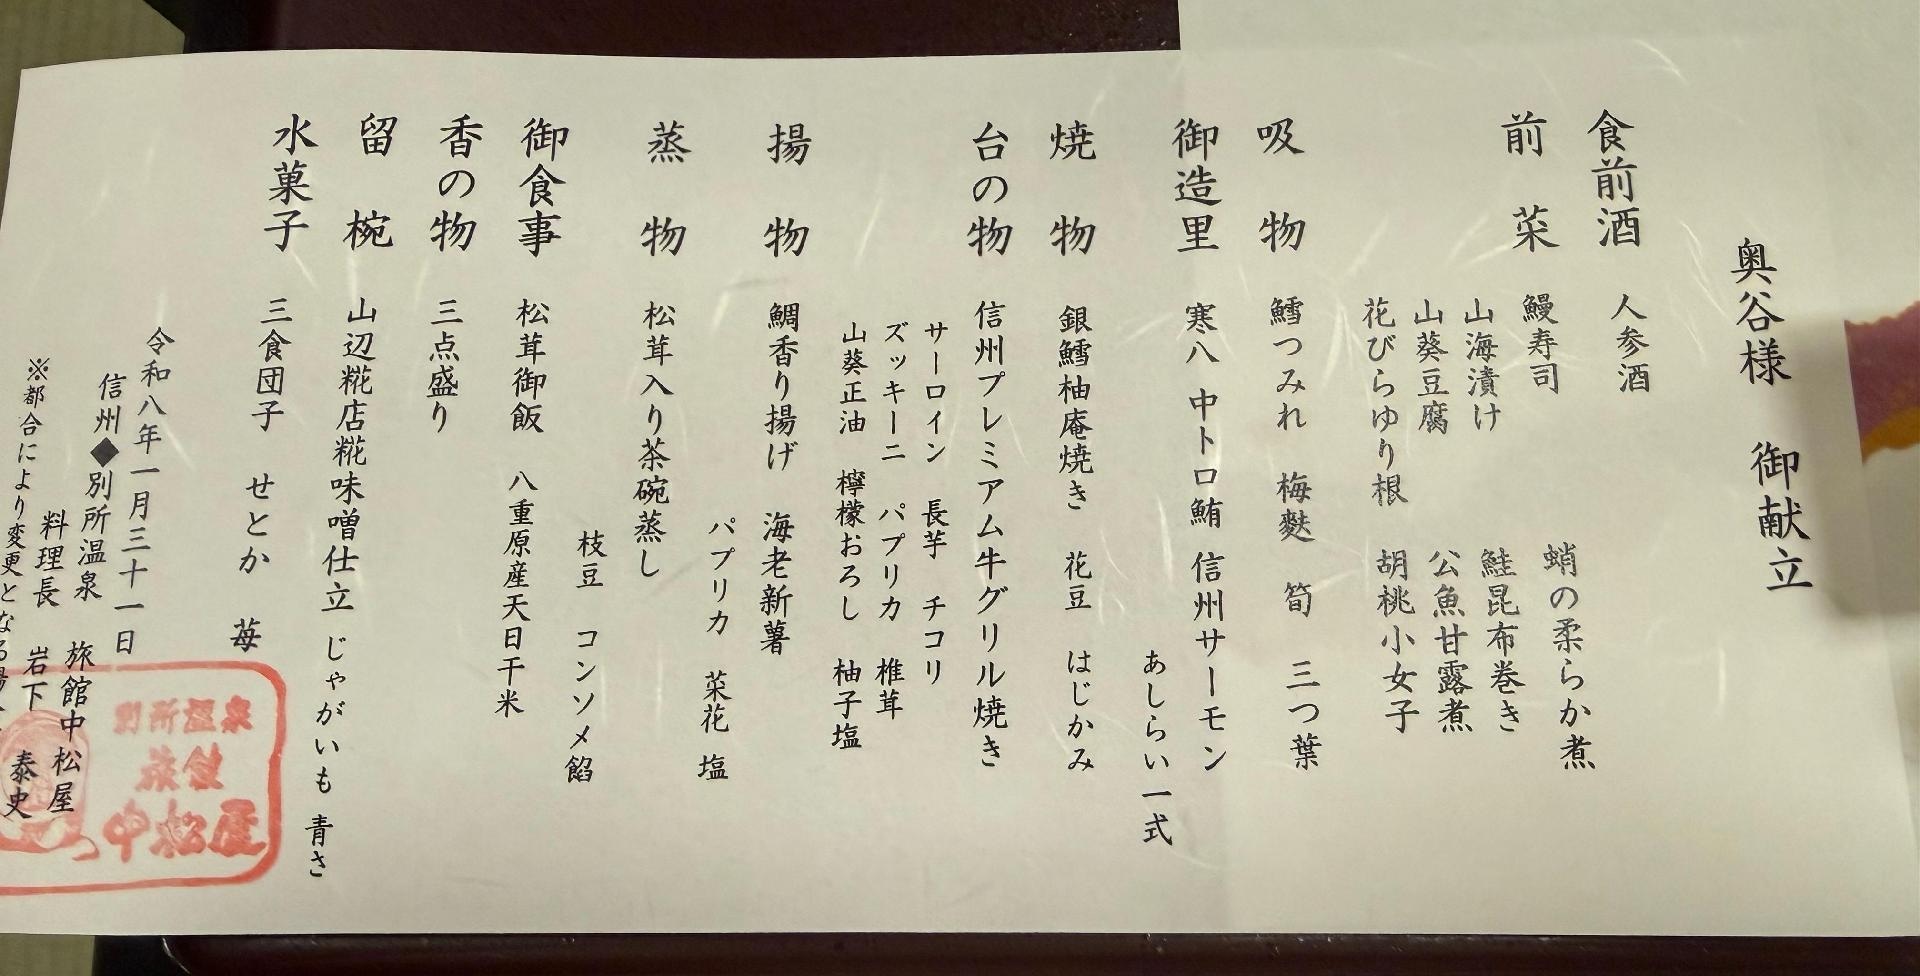 奥谷様 御献立
食前酒 人参酒
前菜 鰻寿司 蛸の柔らか煮
山海漬け 鮭昆布巻き
山葵豆腐 公魚甘露煮
花びらゆり根 胡桃小女子
吸物 鱈つみれ 梅麩 筍 三つ葉
御造里 寒八 中トロ鮪 信州サーモン
あしらい一式
焼物 銀鱈柚庵焼き 花豆 はじかみ
台の物 信州プレミアム牛グリル焼き
サーロイン 長芋 チコリ
ズッキーニ パプリカ 椎茸
山葵正油 檸檬おろし 柚子塩
揚物 鯛香り揚げ 海老新薯
パプリカ 菜花 塩
蒸物 松茸入り茶碗蒸し
枝豆 コンソメ餡
御食事 松茸御飯 八重原産天日干米
香の物 三点盛り
留椀 山辺糀店糀味噌仕立 じゃがいも 青さ
水菓子 三食団子 せとか 苺
令和八年一月三十一日
信州◆別所温泉 旅館中松屋
料理長 岩下 泰史
※都合により変更となる場
別所温泉
旅館
中松屋